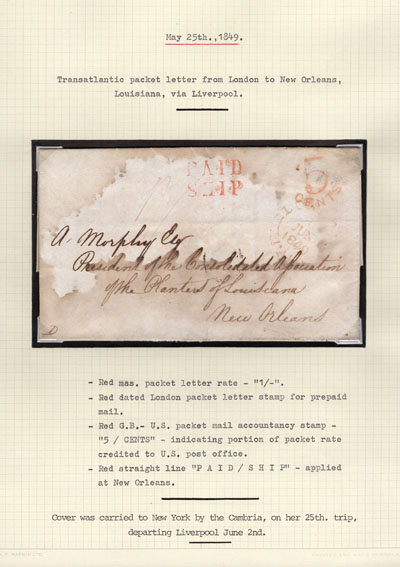 May 25th.,1849.
Transatlantic packet letter from London to New Orleans,
Louisiana, via Liverpool.
PAID
SHIP
5
CENTS
A. Morphy Esq
President of the Consolidated Association
of the Planters of Louisiana
New Orleans
- Red mss. packet letter rate - "1/-".
- Red dated London packet letter stamp for prepaid
mail.
- Red G.B.- U.S. packet mail accountancy stamp -
"5 / CENTS" - indicating portion of packet rate
credited to U.S. post office.
- Red straight line "P A I D / S H I P" - applied
at New Orleans.
Cover was carried to New York by the Cambria, on her 25th. trip,
departing Liverpool June 2nd.